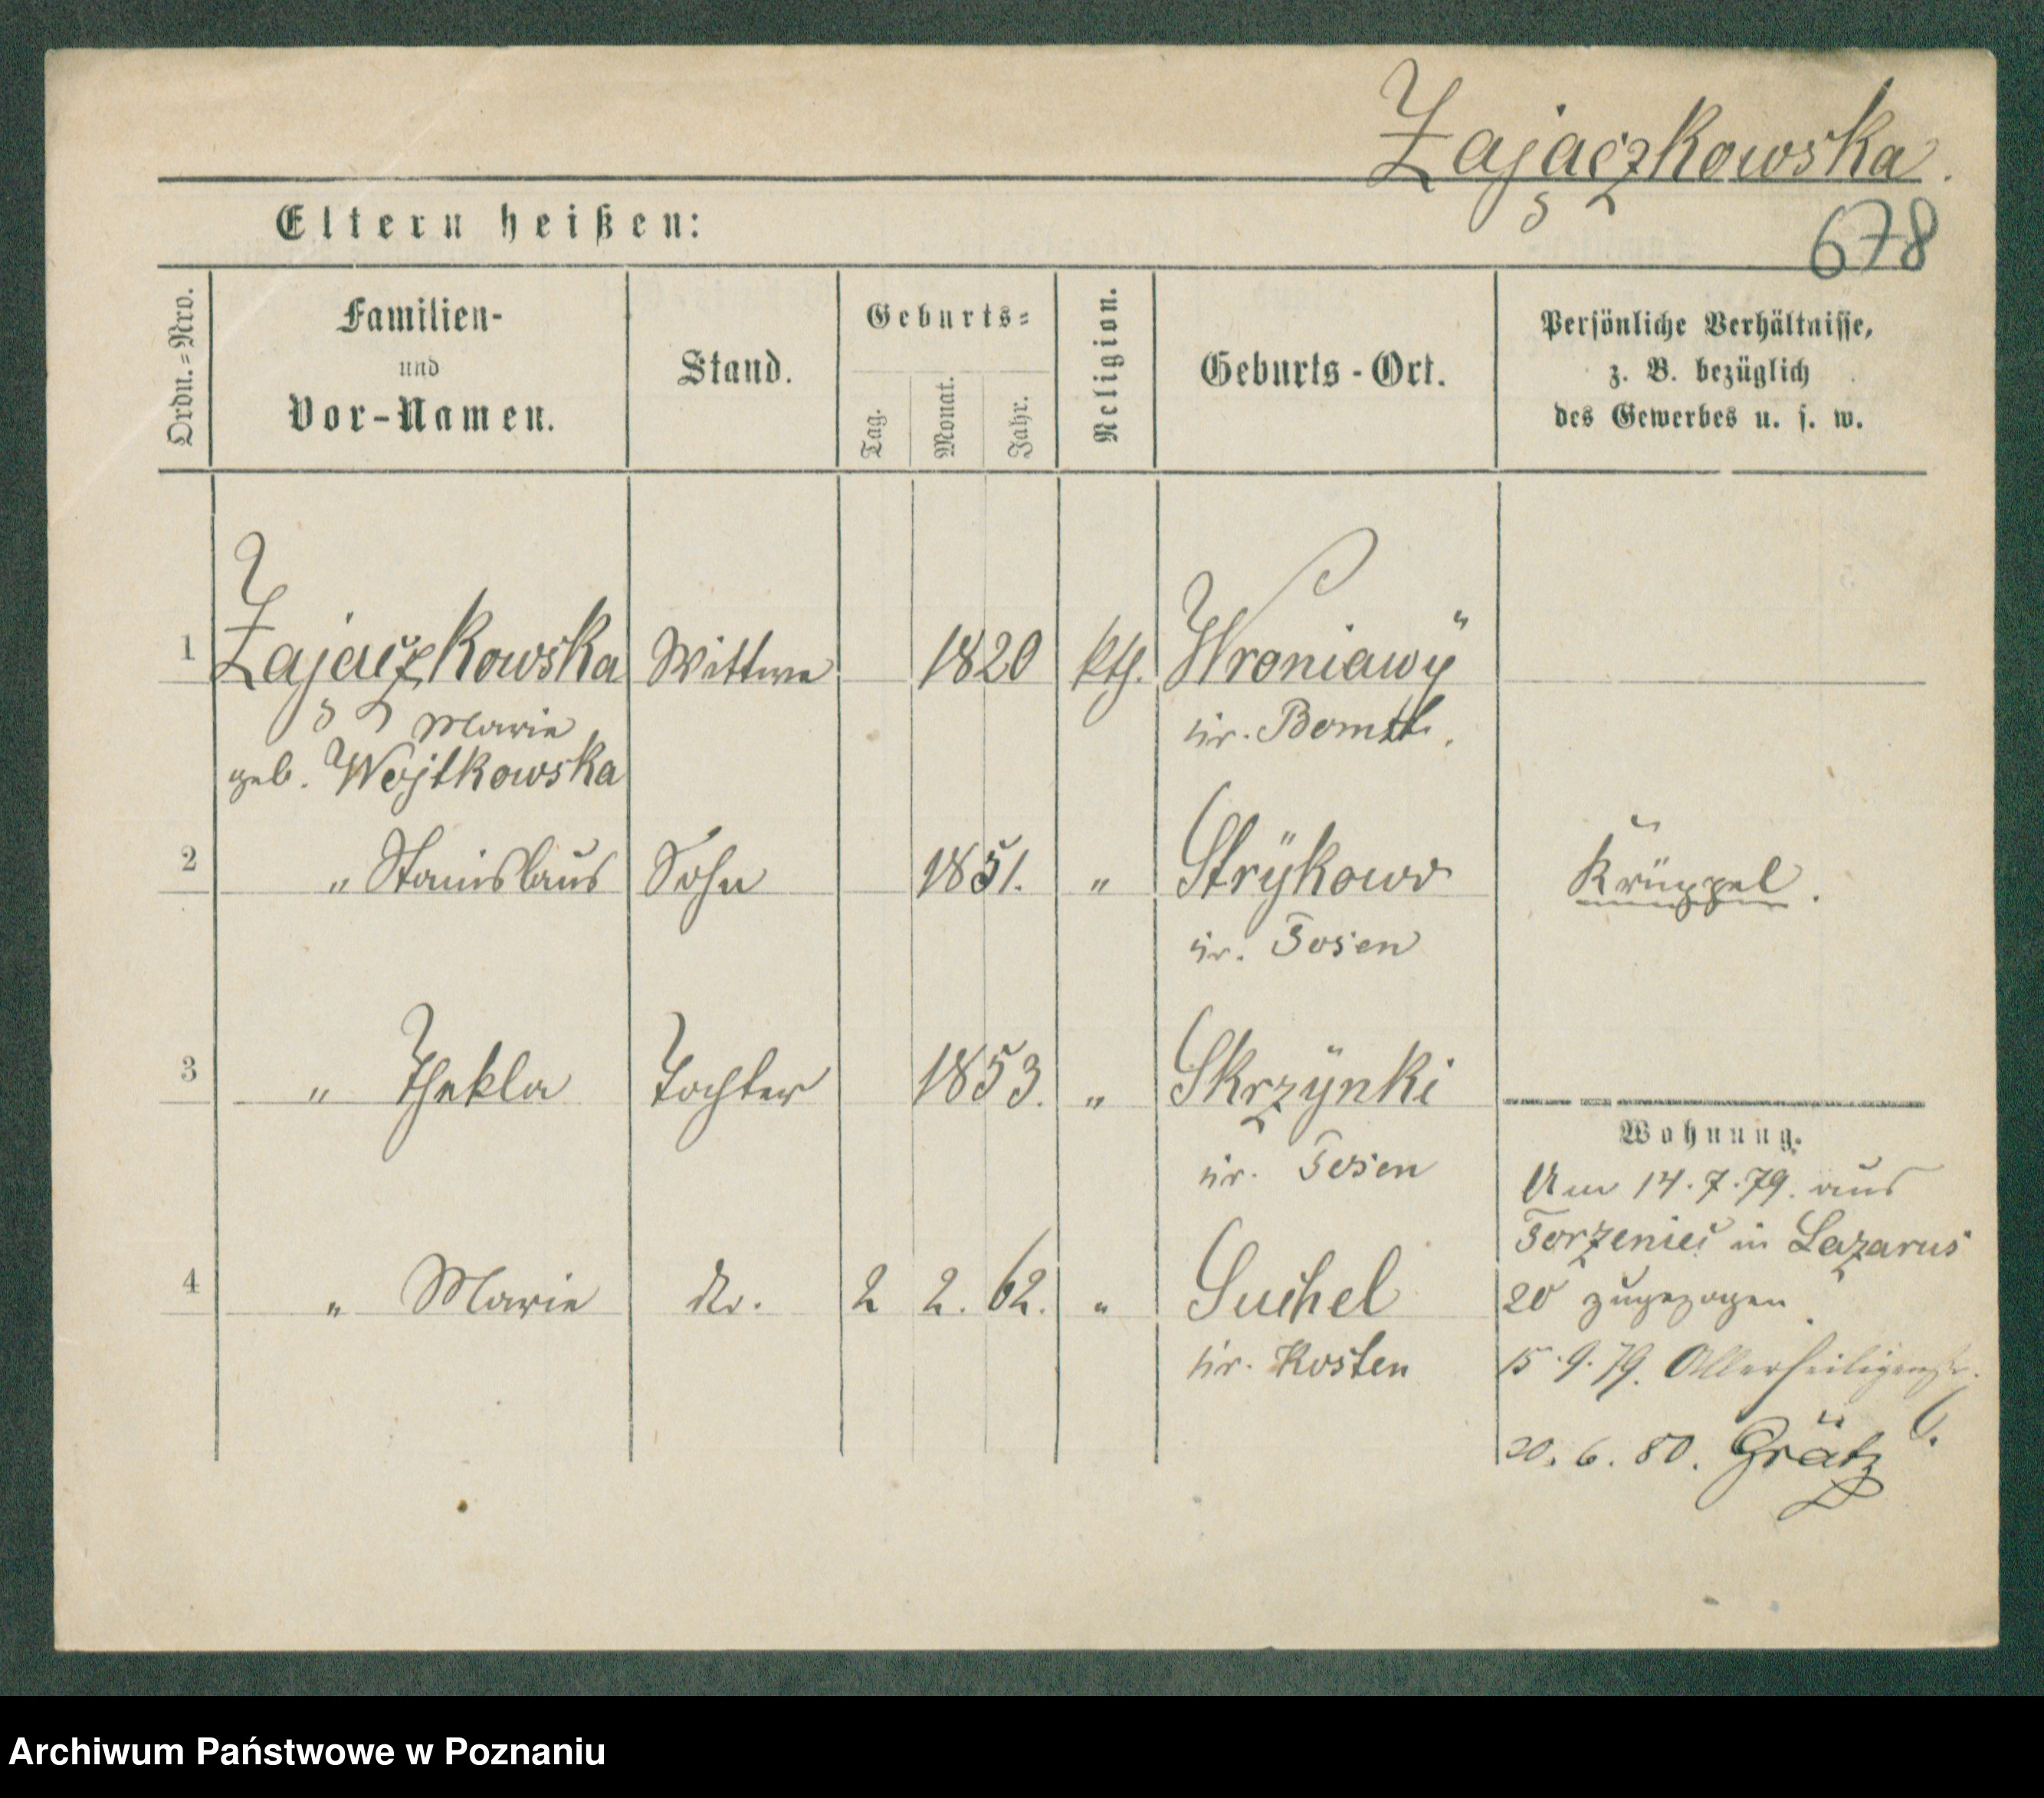 Zajączkowska.
678
Eltern heißen:
Ordn.-Nro.
Familien-
und
Vor-Namen.
Stand.
Geburts-
Tag.
Monat.
Jahr.
Religion.
Geburts-Ort.
Persönliche Verhältnisse,
z. B. bezüglich
des Gewerbes u. s. w.
1 Zajączkowska Wittwe 1820 kth. Wroniawÿ
Marie kr. Bomst.
geb. Wojtkowska
2 " Stanislaus Sohn 1851. " Strÿkowo Krüppel.
kr. Posen
3 " Thekla Tochter 1853. " Skrzÿnki
Wohnung.
kr. Posen
Am 14.7.79. aus
in Lazarus
4 " Marie do. 2 2. 62. " Suchel
20 zugezogen
kr. Kosten
15.9.79. Allerheiligenstr.
6.
20.6.80. Grätz
Archiwum Państwowe w Poznaniu